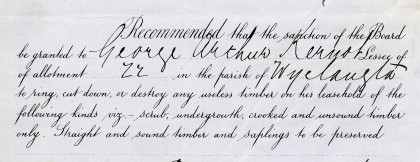 Recommended that the sanction of the Board
be granted to George Arthur Kernot Lessee of
of allotment 22 in the parish of Wyelangta
to ring, cut down, or destroy any useless timber on his leasehold of the
following kinds viz. - scrub, undergrowth, crooked and unsound timber
only. Straight and sound timber and saplings to be preserved